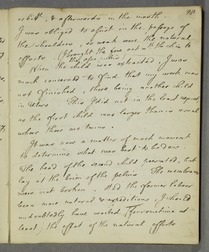 & afterwards in the mouth.
I was obliged to assist in the passage of
the shoulders, so weak were the natural
efforts
When the child was extracted I was
much concerned to find that my work was
not finished, there being another child
in utero. This I did not in the least expect,
as the first child was larger than is usual
when there are twins.
It was now a matter of much moment
to determine what was to be done.
The head of the second child presented, but
lay at the brim of the pelvis. The membranes
were not broken. Had the former labour
been more natural & expeditious, I should
undoubtedly have waited, for sometime at
least, the effect of the natural efforts